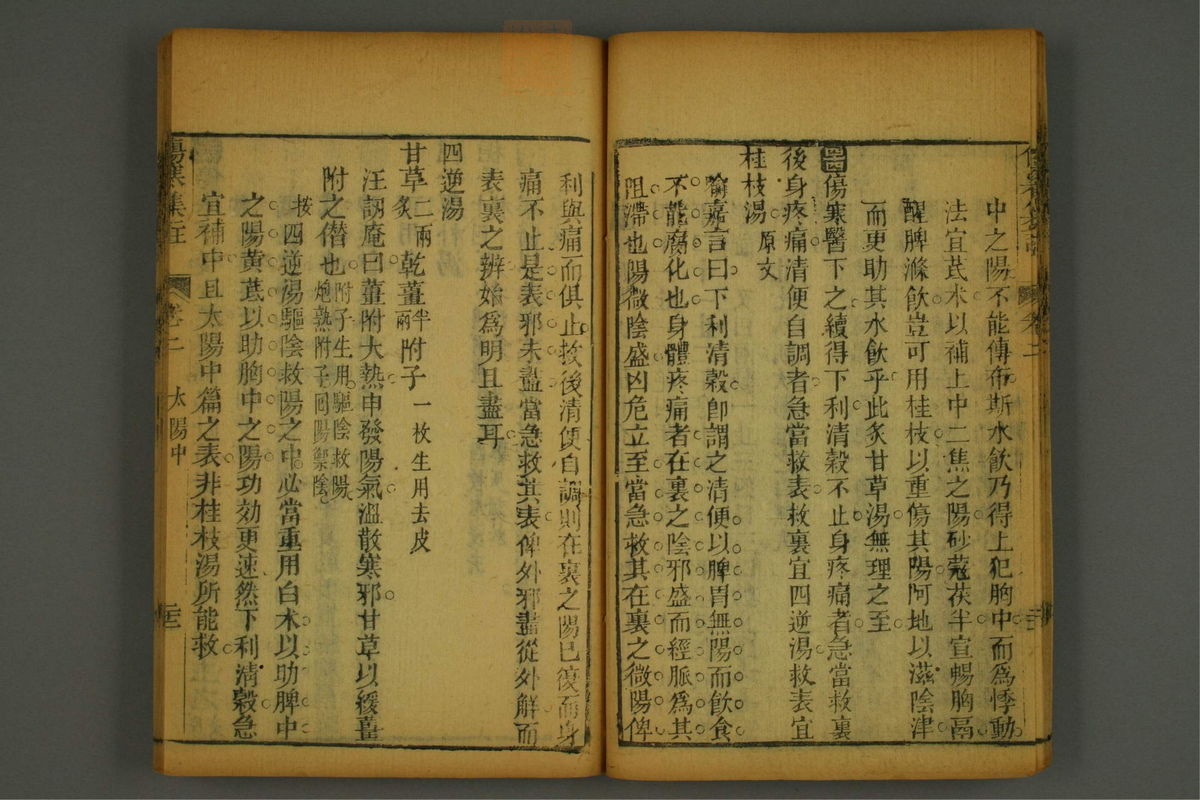 中之陽不能傳布斯水飲乃得上犯胸中而爲悸動
法宜芪术以補上中二焦之陽砂蔻茯半宣暢胸鬲
醒脾滌飲豈可用桂枝以重傷其陽阿地以滋陰津
而更助其水飲乎此炙甘草湯無理之至
傷寒醫下之續得下利清穀不止身疼痛者急當救裏
後身疼痛清便自調者急當救表救裏宜四逆湯救表宜
桂枝湯原文
喻嘉言曰下利清穀卽謂之清便以脾胃無陽而飲食
不能腐化也身體疼痛者在裏之陰邪盛而經脈爲其
阻滯也陽微陰盛凶危立至當急救其在裏之微陽俾
利與痛而俱止救後清便自調則在裏之陽已復而身
痛不止是表邪未盡當急救其表俾外邪盡從外解而
表裏之辨始爲明且盡耳
四逆湯
甘草二兩炙乾薑半兩附子一枚生用去皮
汪訒庵曰薑附大熱申發陽氣溫散寒邪甘草以緩薑
附之僭也附子生用驅陰救陽炮熟附子回陽禦陰
按四逆湯驅陰救陽之中必當重用白术以助脾中
之陽黃芪以助胸中之陽功効更速然下利清穀急
宜補中且太陽中篇之表非桂枝湯所能救
卷二
太陽中